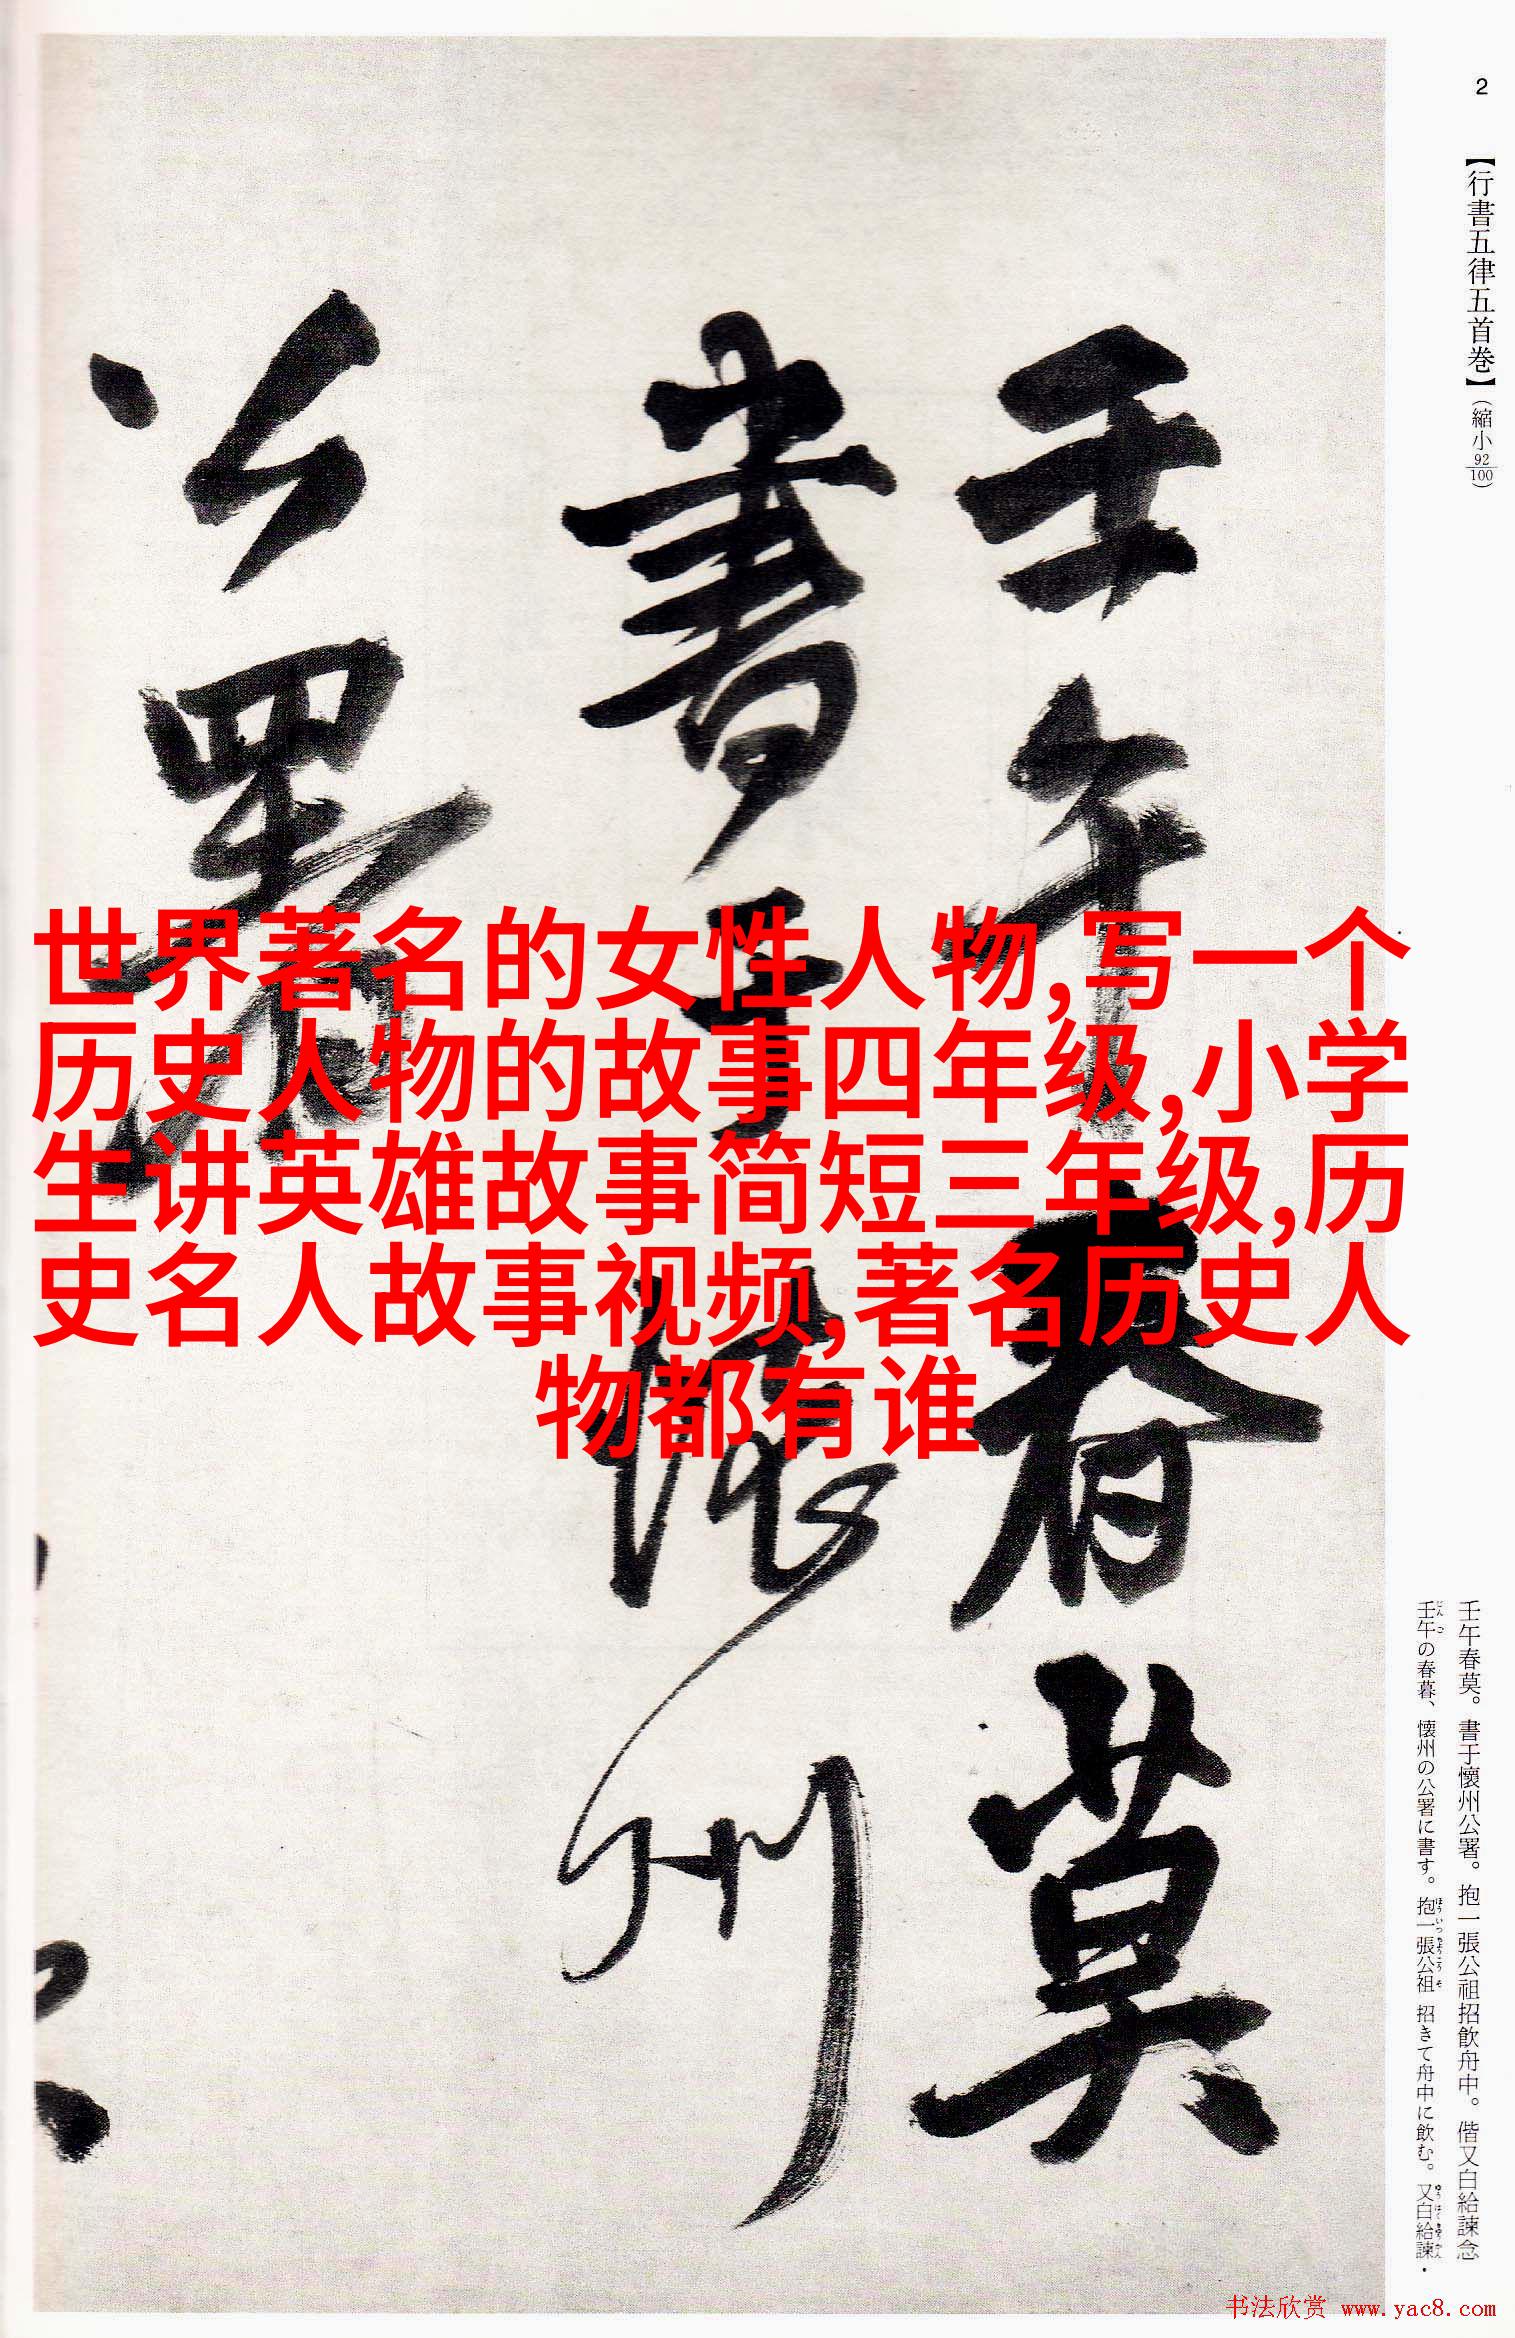 2
【行書五律五首巻】(縮小92/100)
壬午春莫
書于懷州
公署
世界著名的女性人物,写一个
历史人物的故事四年级,小学
生讲英雄故事简短三年级,历
史名人故事视频,著名历史人
物都有谁
壬午春莫。書于懷州公署。抱一張公祖招飮舟中。偕又白給諫念
壬午の春暮、懐州の公署に書す。抱一張公祖 招きて舟中に飲む。又白給諫・
书法欣赏 www.yac8.com